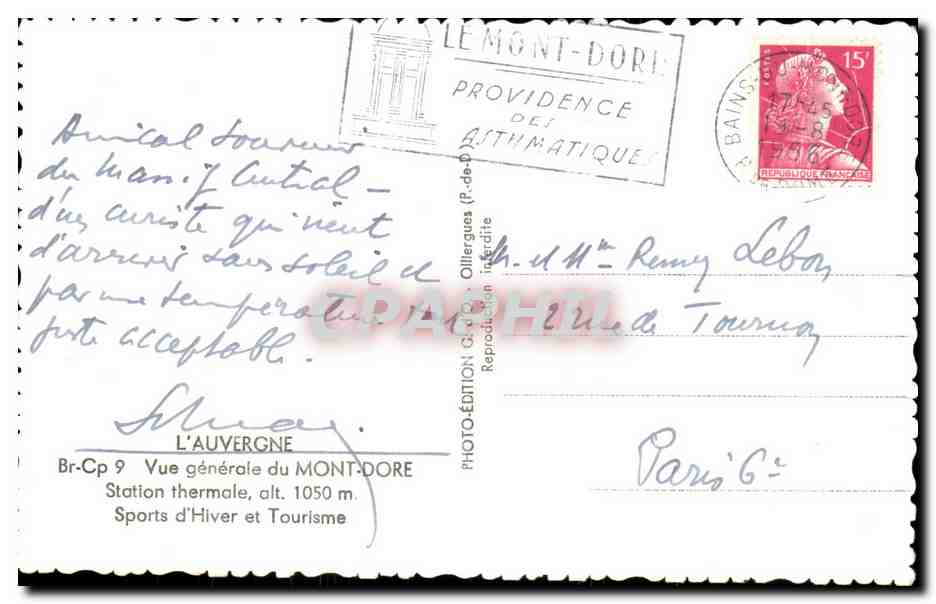 LE MONT-DORE
PROVIDENCE
DES
ASTHMATIQUES
15F
POSTES
REPUBLIQUE FRANÇAISE
BAINS
17H45
1-8
1956
Amical souvenir
du Massif Central –
d'un curiste qui vient
d'arriver sans soleil et
par une température tout
juste acceptable.
L'AUVERGNE
Br-Cp 9 Vue générale du MONT-DORE
Station thermale, alt. 1050 m.
Sports d'Hiver et Tourisme
PHOTO-ÉDITION G. d'O. - Olliergues (P.-de-D.)
Reproduction interdite
M. et Mme Remy Lebon
2 rue de Tournon
Paris 6e
CPAPHIL